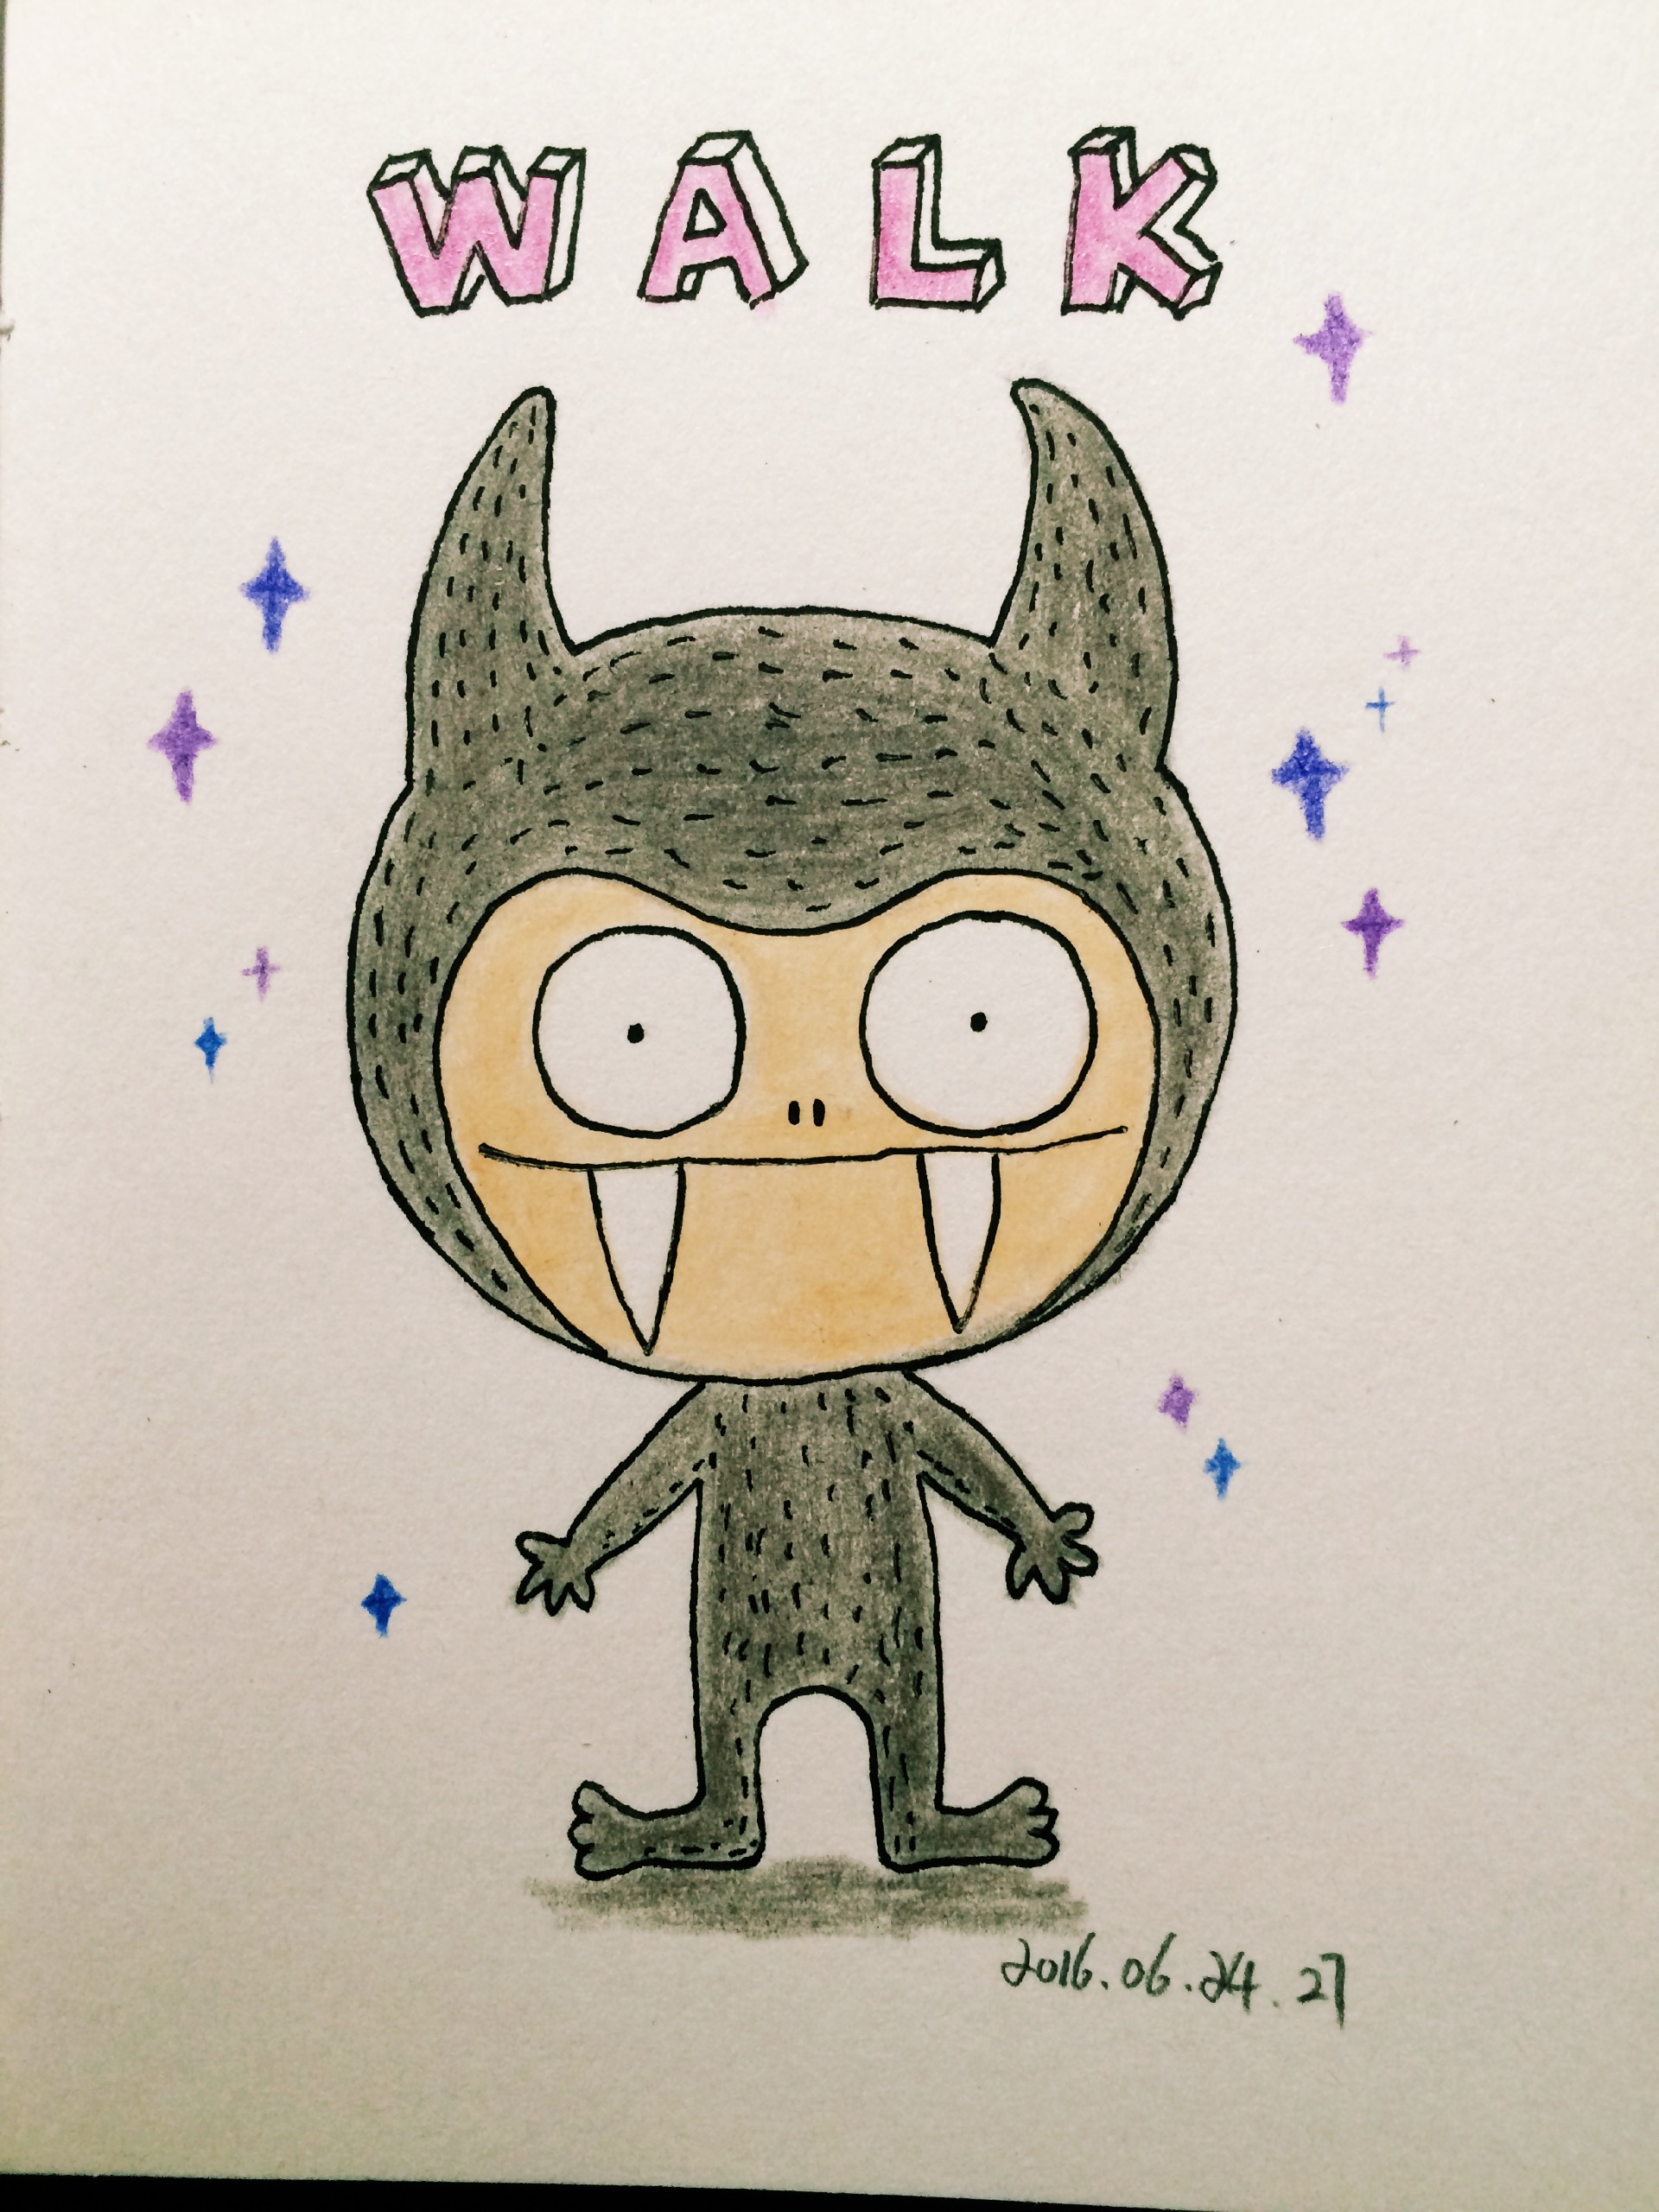 WALK
2016.06.24.27